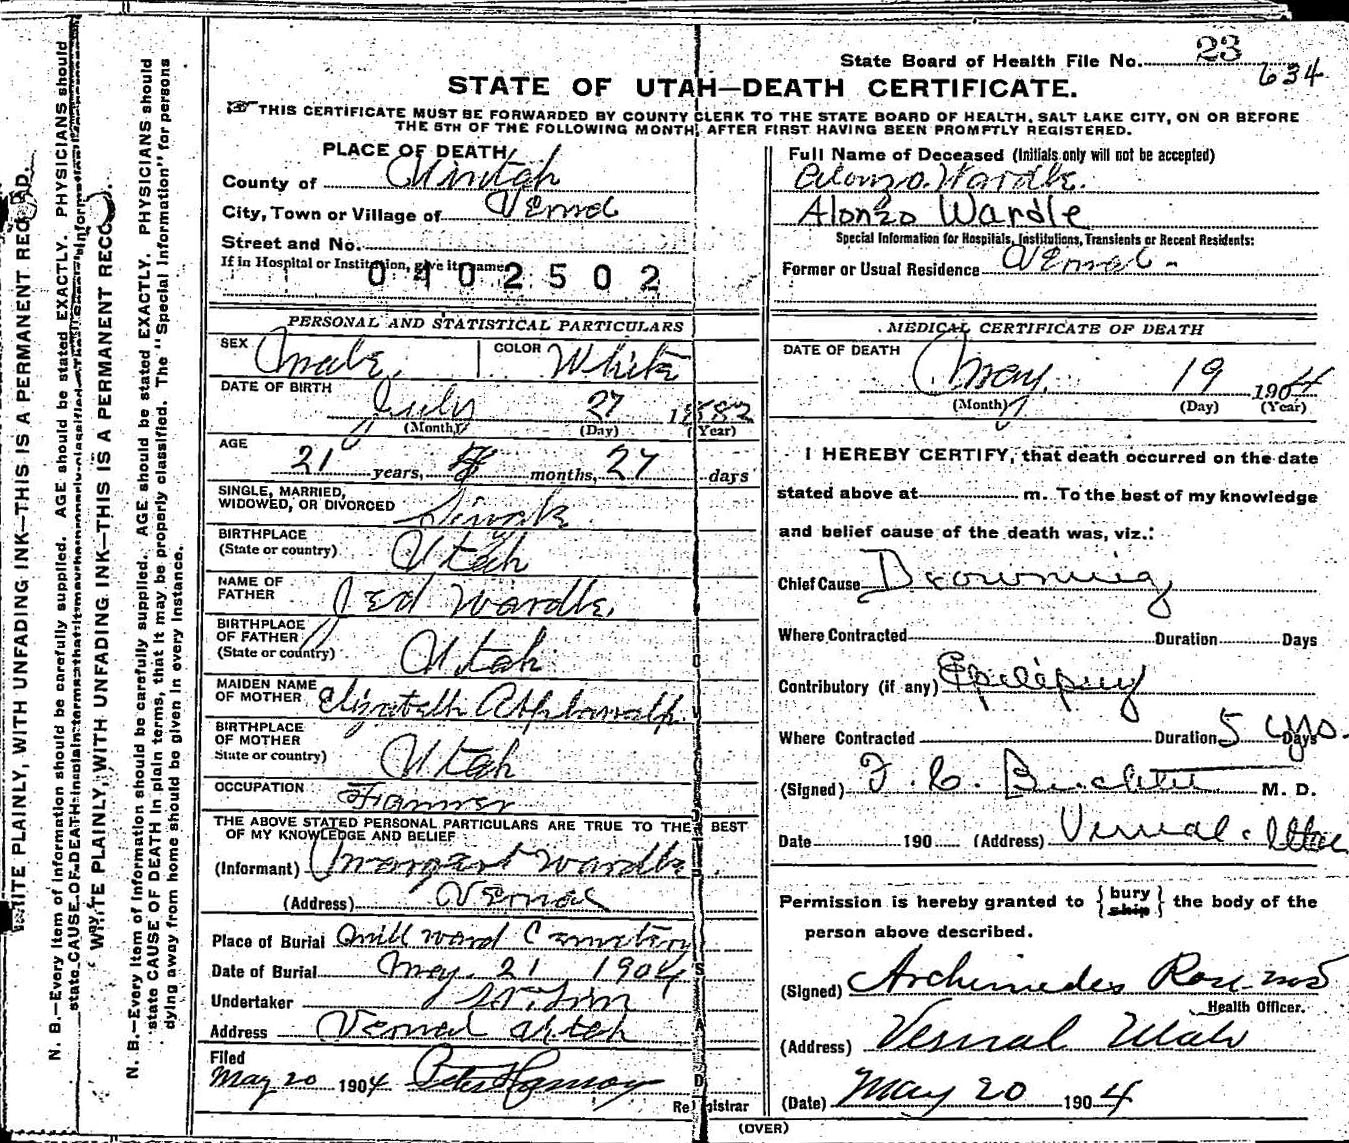 State Board of Health File No. 23
634
STATE OF UTAH—DEATH CERTIFICATE.
THIS CERTIFICATE MUST BE FORWARDED BY COUNTY CLERK TO THE STATE BOARD OF HEALTH, SALT LAKE CITY, ON OR BEFORE
THE 5TH OF THE FOLLOWING MONTH, AFTER FIRST HAVING BEEN PROMPTLY REGISTERED.
PLACE OF DEATH
County of Uintah
City, Town or Village of Vernal
Street and No.
If in Hospital or Institution, give its name
0402502
Full Name of Deceased (Initials only will not be accepted)
Alonzo Wardle.
Alonzo Wardle
Special Information for Hospitals, Institutions, Transients or Recent Residents:
Former or Usual Residence Vernal -
PERSONAL AND STATISTICAL PARTICULARS
SEX Male. COLOR White
DATE OF BIRTH
July 27 1882
(Month) (Day) (Year)
AGE
21 years, months, 27 days
SINGLE, MARRIED,
WIDOWED, OR DIVORCED Single
BIRTHPLACE
(State or country) Utah
NAME OF
FATHER Jed Wardle.
BIRTHPLACE
OF FATHER
(State or country) Utah
MAIDEN NAME
OF MOTHER Elizabeth
BIRTHPLACE
OF MOTHER
State or country) Utah
OCCUPATION Farmer
THE ABOVE STATED PERSONAL PARTICULARS ARE TRUE TO THE BEST
OF MY KNOWLEDGE AND BELIEF
(Informant) Margaret Wardle
(Address) Vernal
Place of Burial Mill ward Cemetery
Date of Burial May. 21 1904
Undertaker
Address Vernal Utah
Filed
May 20 1904
Registrar
MEDICAL CERTIFICATE OF DEATH
DATE OF DEATH
May. 19 1904
(Month) (Day) (Year)
I HEREBY CERTIFY, that death occurred on the date
stated above at m. To the best of my knowledge
and belief cause of the death was, viz.:
Chief Cause Drowning
Where Contracted Duration Days
Contributory (if any) Epilepsy
Where Contracted Duration 5 yrs. Days
(Signed) F. C. M. D.
Date 190 (Address) Vernal. Utah
Permission is hereby granted to { bury
ship } the body of the
person above described.
(Signed) Archimedes Rose MD
Health Officer.
(Address) Vernal Utah
(Date) May 20 1904
(OVER)
WRITE PLAINLY, WITH UNFADING INK—THIS IS A PERMANENT RECORD.
N. B.—Every item of information should be carefully supplied. AGE should be stated EXACTLY. PHYSICIANS should
state CAUSE OF DEATH in plain terms, that it may be properly classified. The "Special Information" for persons
WRITE PLAINLY, WITH UNFADING INK—THIS IS A PERMANENT RECO
N. B.—Every item of information should be carefully supplied. AGE should be stated EXACTLY. PHYSICIANS should
state CAUSE OF DEATH in plain terms, that it may be properly classified. The "Special Information" for persons
dying away from home should be given in every instance.